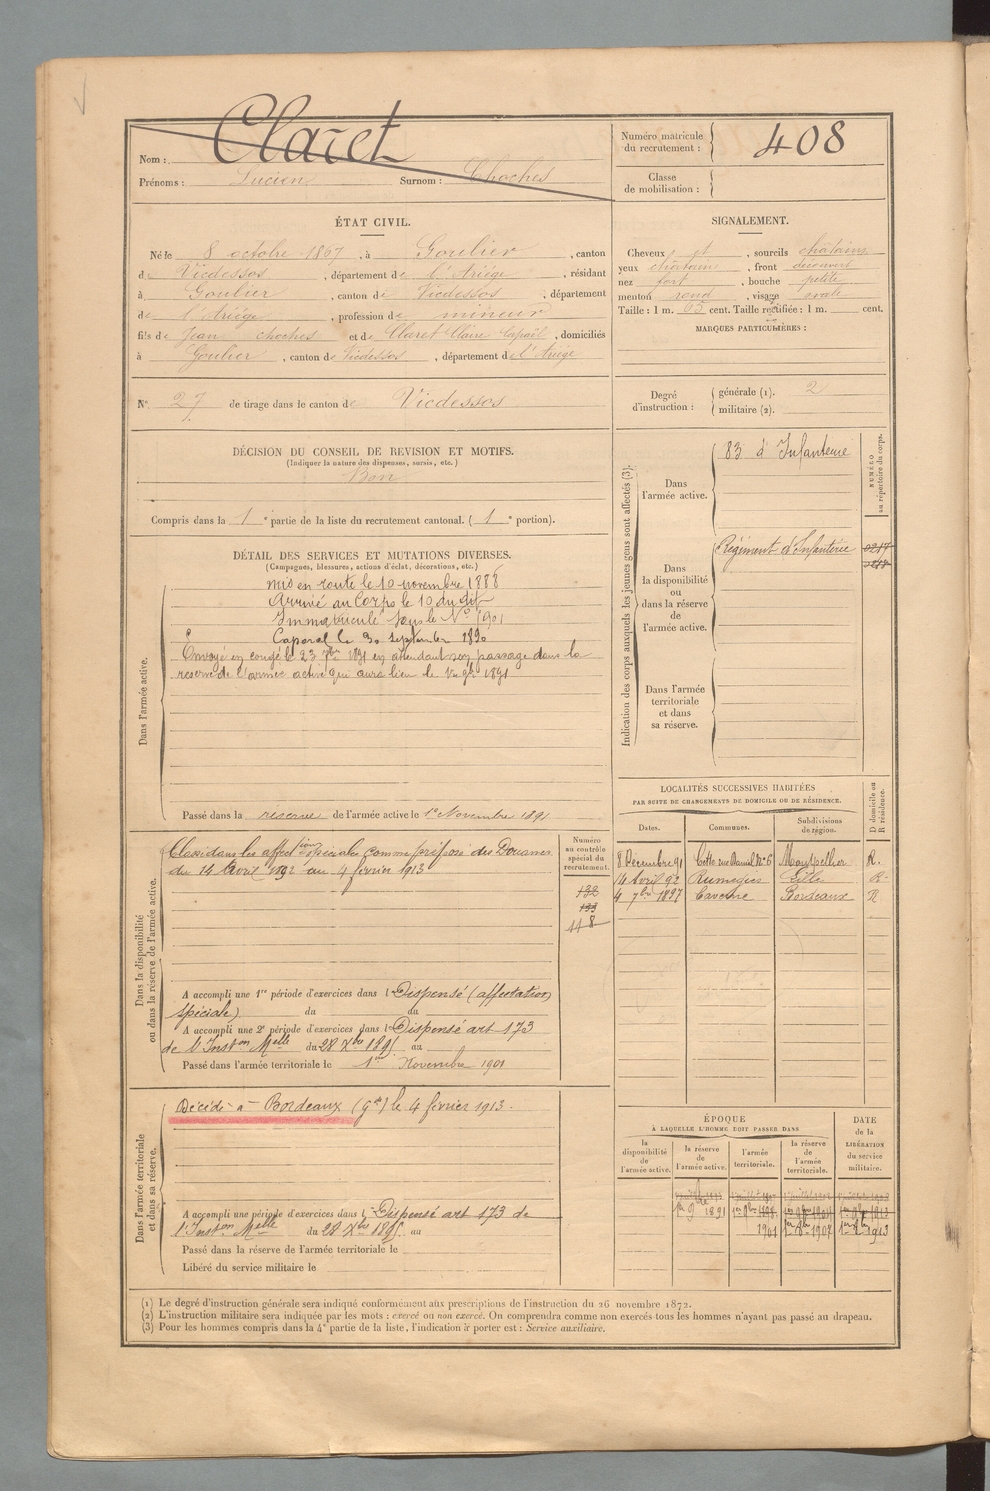 Nom : Claret
Prénoms : Lucien Surnom : Choches
Numéro matricule du recrutement : 408
Classe de mobilisation :
ÉTAT CIVIL.
Né le 8 octobre 1867, à Goulier, canton
de Vicdessos, département de l'Ariège, résidant
à Goulier, canton de Vicdessos, département
de l'Ariège, profession de mineur
fils de Jean choches et de Claret Claire, domiciliés
à Goulier, canton de Vicdessos, département de l'Ariège
N° 27 de tirage dans le canton de Vicdessos
SIGNALEMENT.
Cheveux et, sourcils châtains
yeux châtains, front découvert
nez fort, bouche petite
menton rond, visage ovale
Taille : 1 m. 65 cent. Taille rectifiée : 1 m. cent.
MARQUES PARTICULIÈRES :
Degré d'instruction : générale (1). 2
militaire (2).
DÉCISION DU CONSEIL DE REVISION ET MOTIFS.
(Indiquer la nature des dispenses, sursis, etc.)
Bon
Compris dans la 1e partie de la liste du recrutement cantonal. (1e portion).
DÉTAIL DES SERVICES ET MUTATIONS DIVERSES.
(Campagnes, blessures, actions d'éclat, décorations, etc.)
Dans l'armée active.
Mis en route le 10 novembre 1888
Arrivé au Corps le 10 du dit
Immatriculé sous le N°
Caporal le 30 septembre 1890
Envoyé en congé le 23 7bre 1891 en attendant son passage dans la
réserve de l'armée active qui aura lieu le 1er 9bre 1891
Passé dans la réserve de l'armée active le 1er Novembre 1891
Indication des corps auxquels les jeunes gens sont affectés (3).
NUMÉRO au répertoire du corps.
Dans l'armée active.
83 d'Infanterie
Dans la disponibilité ou dans la réserve de l'armée active.
Régiment d'Infanterie
Dans l'armée territoriale et dans sa réserve.
LOCALITÉS SUCCESSIVES HABITÉES
PAR SUITE DE CHANGEMENTS DE DOMICILE OU DE RÉSIDENCE.
Dates. Communes. Subdivisions de région. D domicile ou R résidence.
8 Décembre 91 Cette rue N° 6 Montpellier R.
14 Avril 92 Rumegies Lille R.
4 7bre 1897 Bordeaux R
Dans la disponibilité ou dans la réserve de l'armée active.
Numéro au contrôle spécial du recrutement.
Classé dans les affections spéciales comme préposé des Douanes
du 14 Avril 1892 au 4 février 1913
132
133
118
A accompli une 1re période d'exercices dans l Dispensé (affectation
spéciale) du au
A accompli une 2e période d'exercices dans l Dispensé art 173
de l'Inston Melle du 28 Xbre 1895 au
Passé dans l'armée territoriale le 1er Novembre 1901
Dans l'armée territoriale et dans sa réserve.
Décédé à Bordeaux (Gde) le 4 février 1913.
A accompli une période d'exercices dans l Dispensé art 173 de
l'Inston Melle du 28 Xbre 1895 au
Passé dans la réserve de l'armée territoriale le
Libéré du service militaire le
ÉPOQUE
À LAQUELLE L'HOMME DOIT PASSER DANS
DATE de la LIBÉRATION du service militaire.
la disponibilité de l'armée active. la réserve de l'armée active. l'armée territoriale. la réserve de l'armée territoriale.
1er 9bre 1891
1901 1er 8bre 1907 1913
(1) Le degré d'instruction générale sera indiqué conformément aux prescriptions de l'instruction du 26 novembre 1872.
(2) L'instruction militaire sera indiquée par les mots : exercé ou non exercé. On comprendra comme non exercés tous les hommes n'ayant pas passé au drapeau.
(3) Pour les hommes compris dans la 4e partie de la liste, l'indication à porter est : Service auxiliaire.